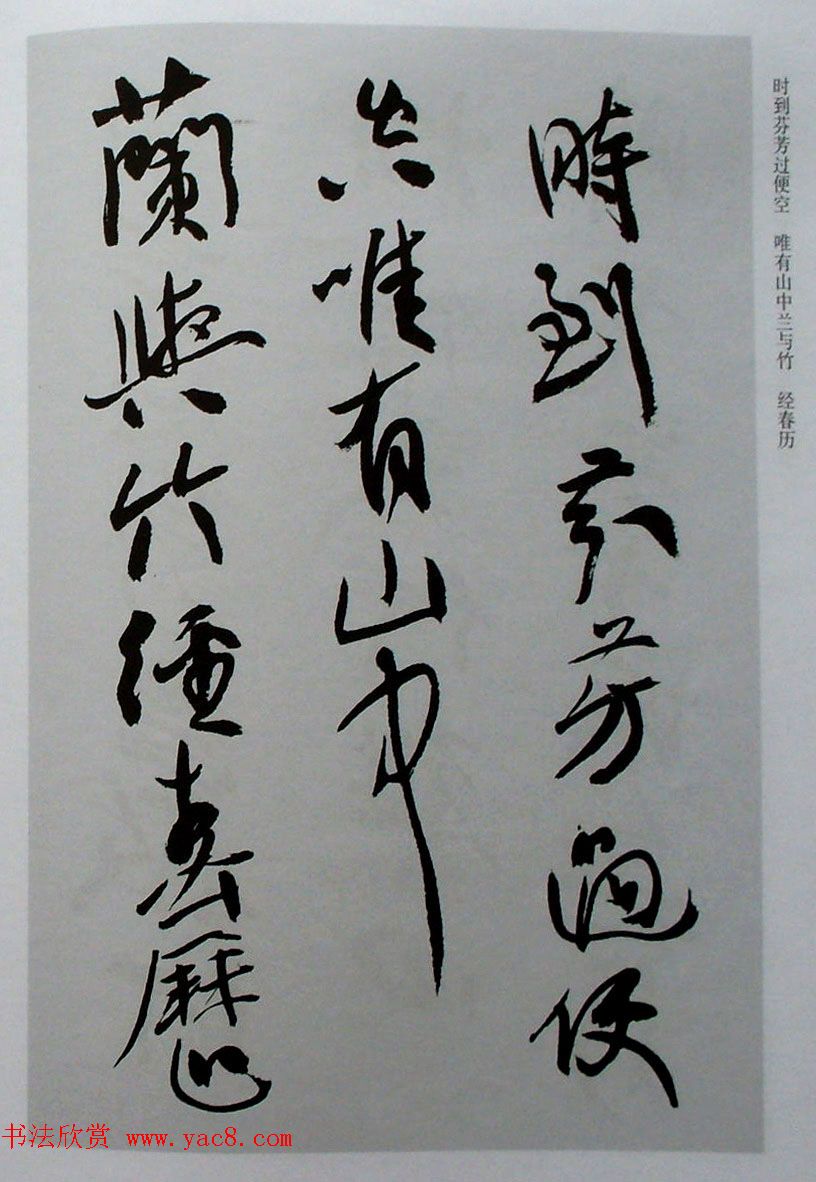 時到芬芳過便
空唯有山中
蘭與竹經春歷
时到芬芳过便空　唯有山中兰与竹　经春历
书法欣赏 www.yac8.com